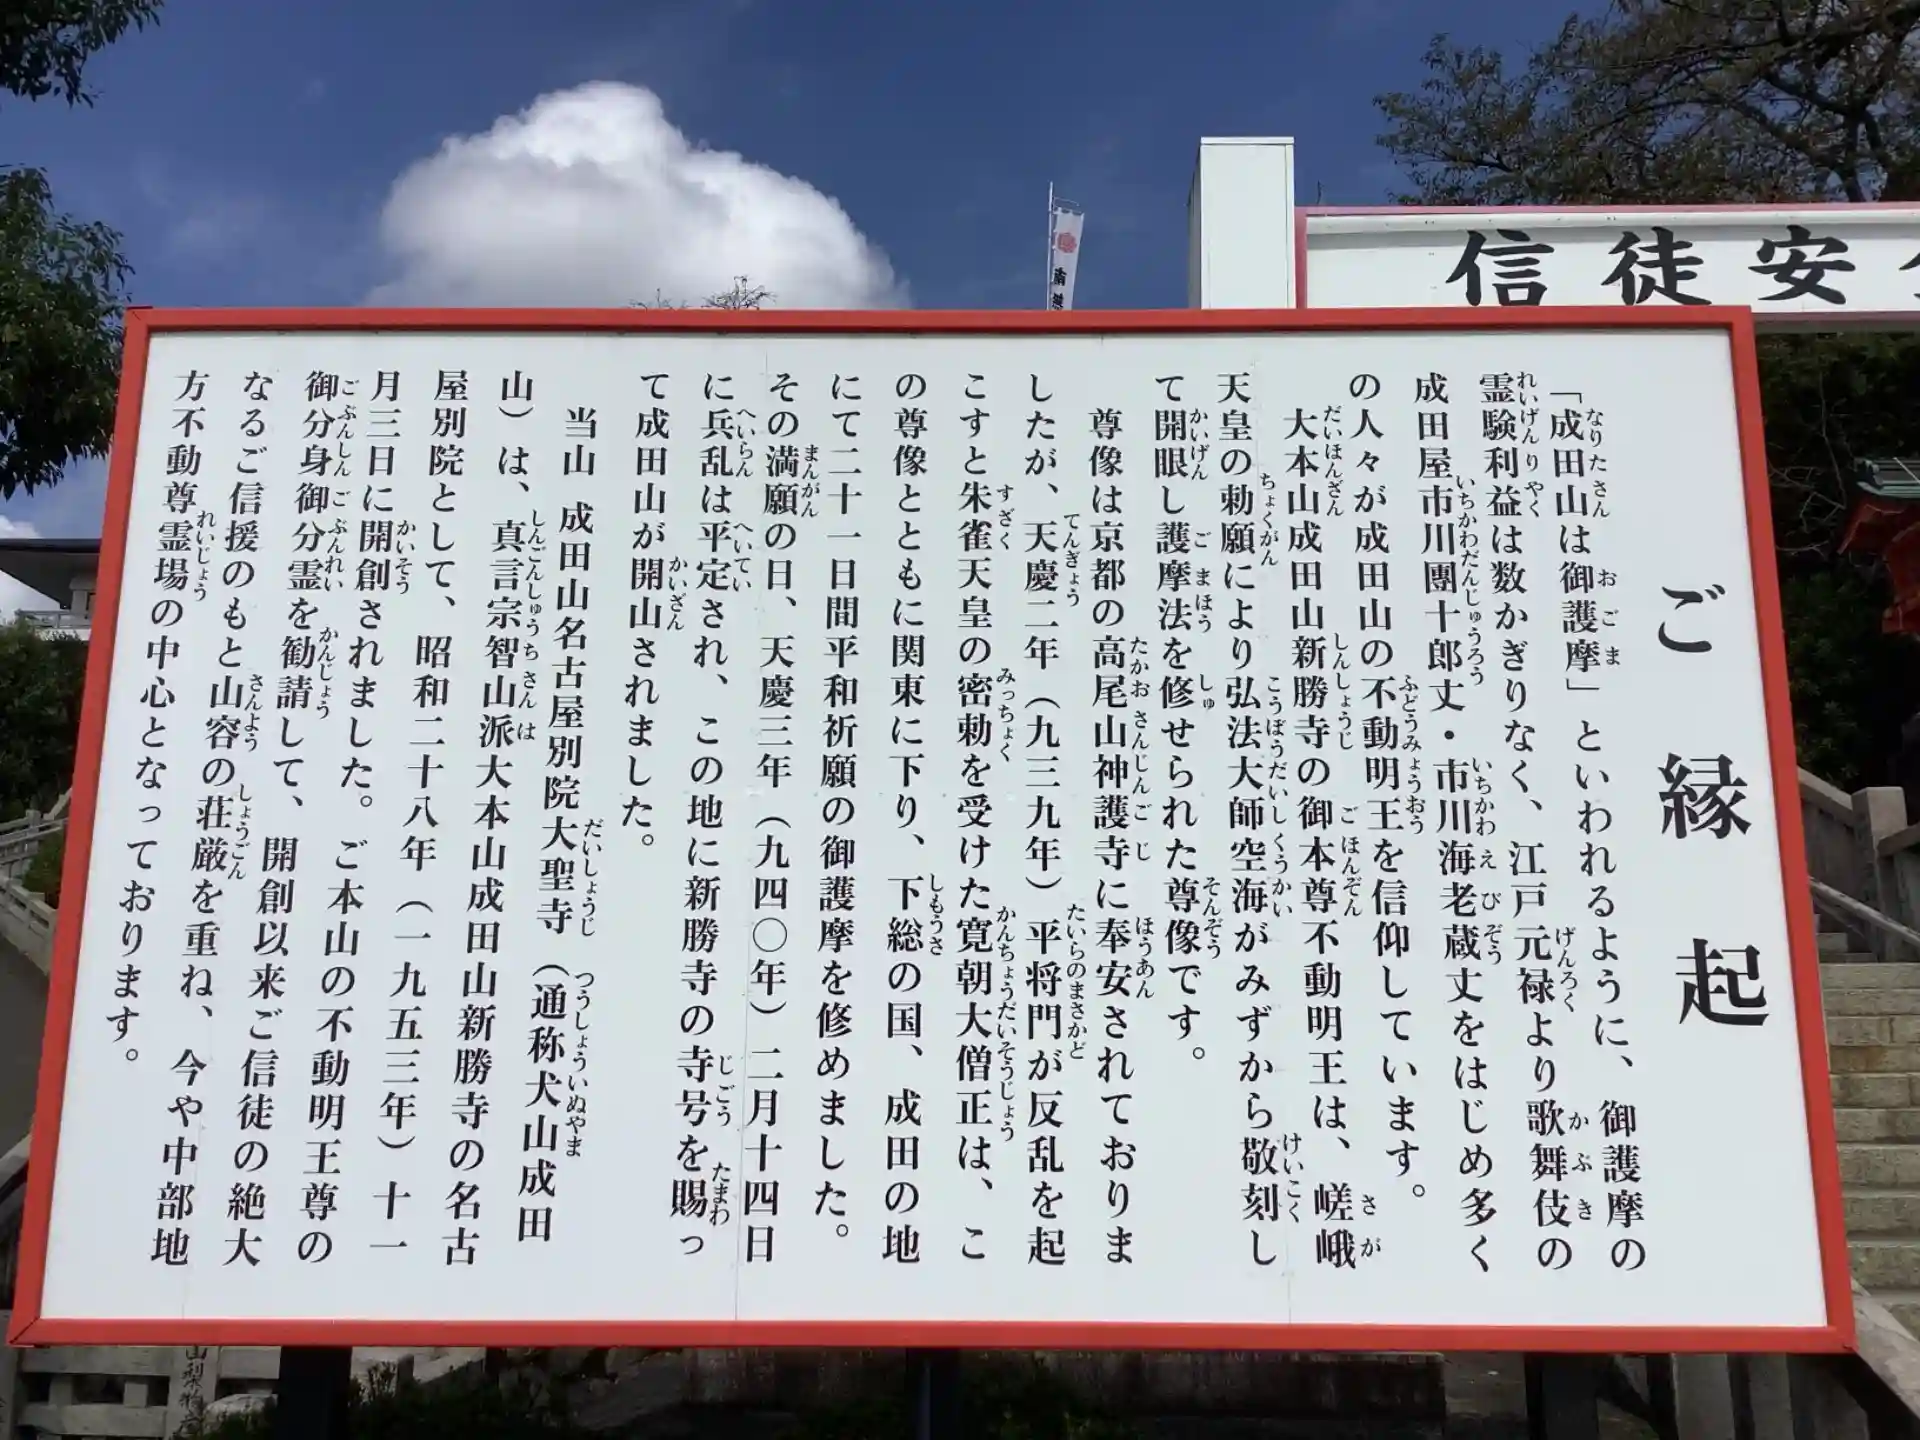 信徒安
ご縁起
「成田山は御護摩」といわれるように、御護摩の
霊験利益は数かぎりなく、江戸元禄より歌舞伎の
成田屋市川團十郎丈・市川海老蔵丈をはじめ多く
の人々が成田山の不動明王を信仰しています。
大本山成田山新勝寺の御本尊不動明王は、嵯峨
天皇の勅願により弘法大師空海がみずから敬刻し
て開眼し護摩法を修せられた尊像です。
尊像は京都の高尾山神護寺に奉安されておりま
したが、天慶二年（九三九年）平将門が反乱を起
こすと朱雀天皇の密勅を受けた寛朝大僧正は、こ
の尊像とともに関東に下り、下総の国、成田の地
にて二十一日間平和祈願の御護摩を修めました。
その満願の日、天慶三年（九四〇年）二月十四日
に兵乱は平定され、この地に新勝寺の寺号を賜っ
て成田山が開山されました。
当山 成田山名古屋別院大聖寺（通称犬山成田
山）は、真言宗智山派大本山成田山新勝寺の名古
屋別院として、昭和二十八年（一九五三年）十一
月三日に開創されました。ご本山の不動明王尊の
御分身御分霊を勧請して、開創以来ご信徒の絶大
なるご信援のもと山容の荘厳を重ね、今や中部地
方不動尊霊場の中心となっております。